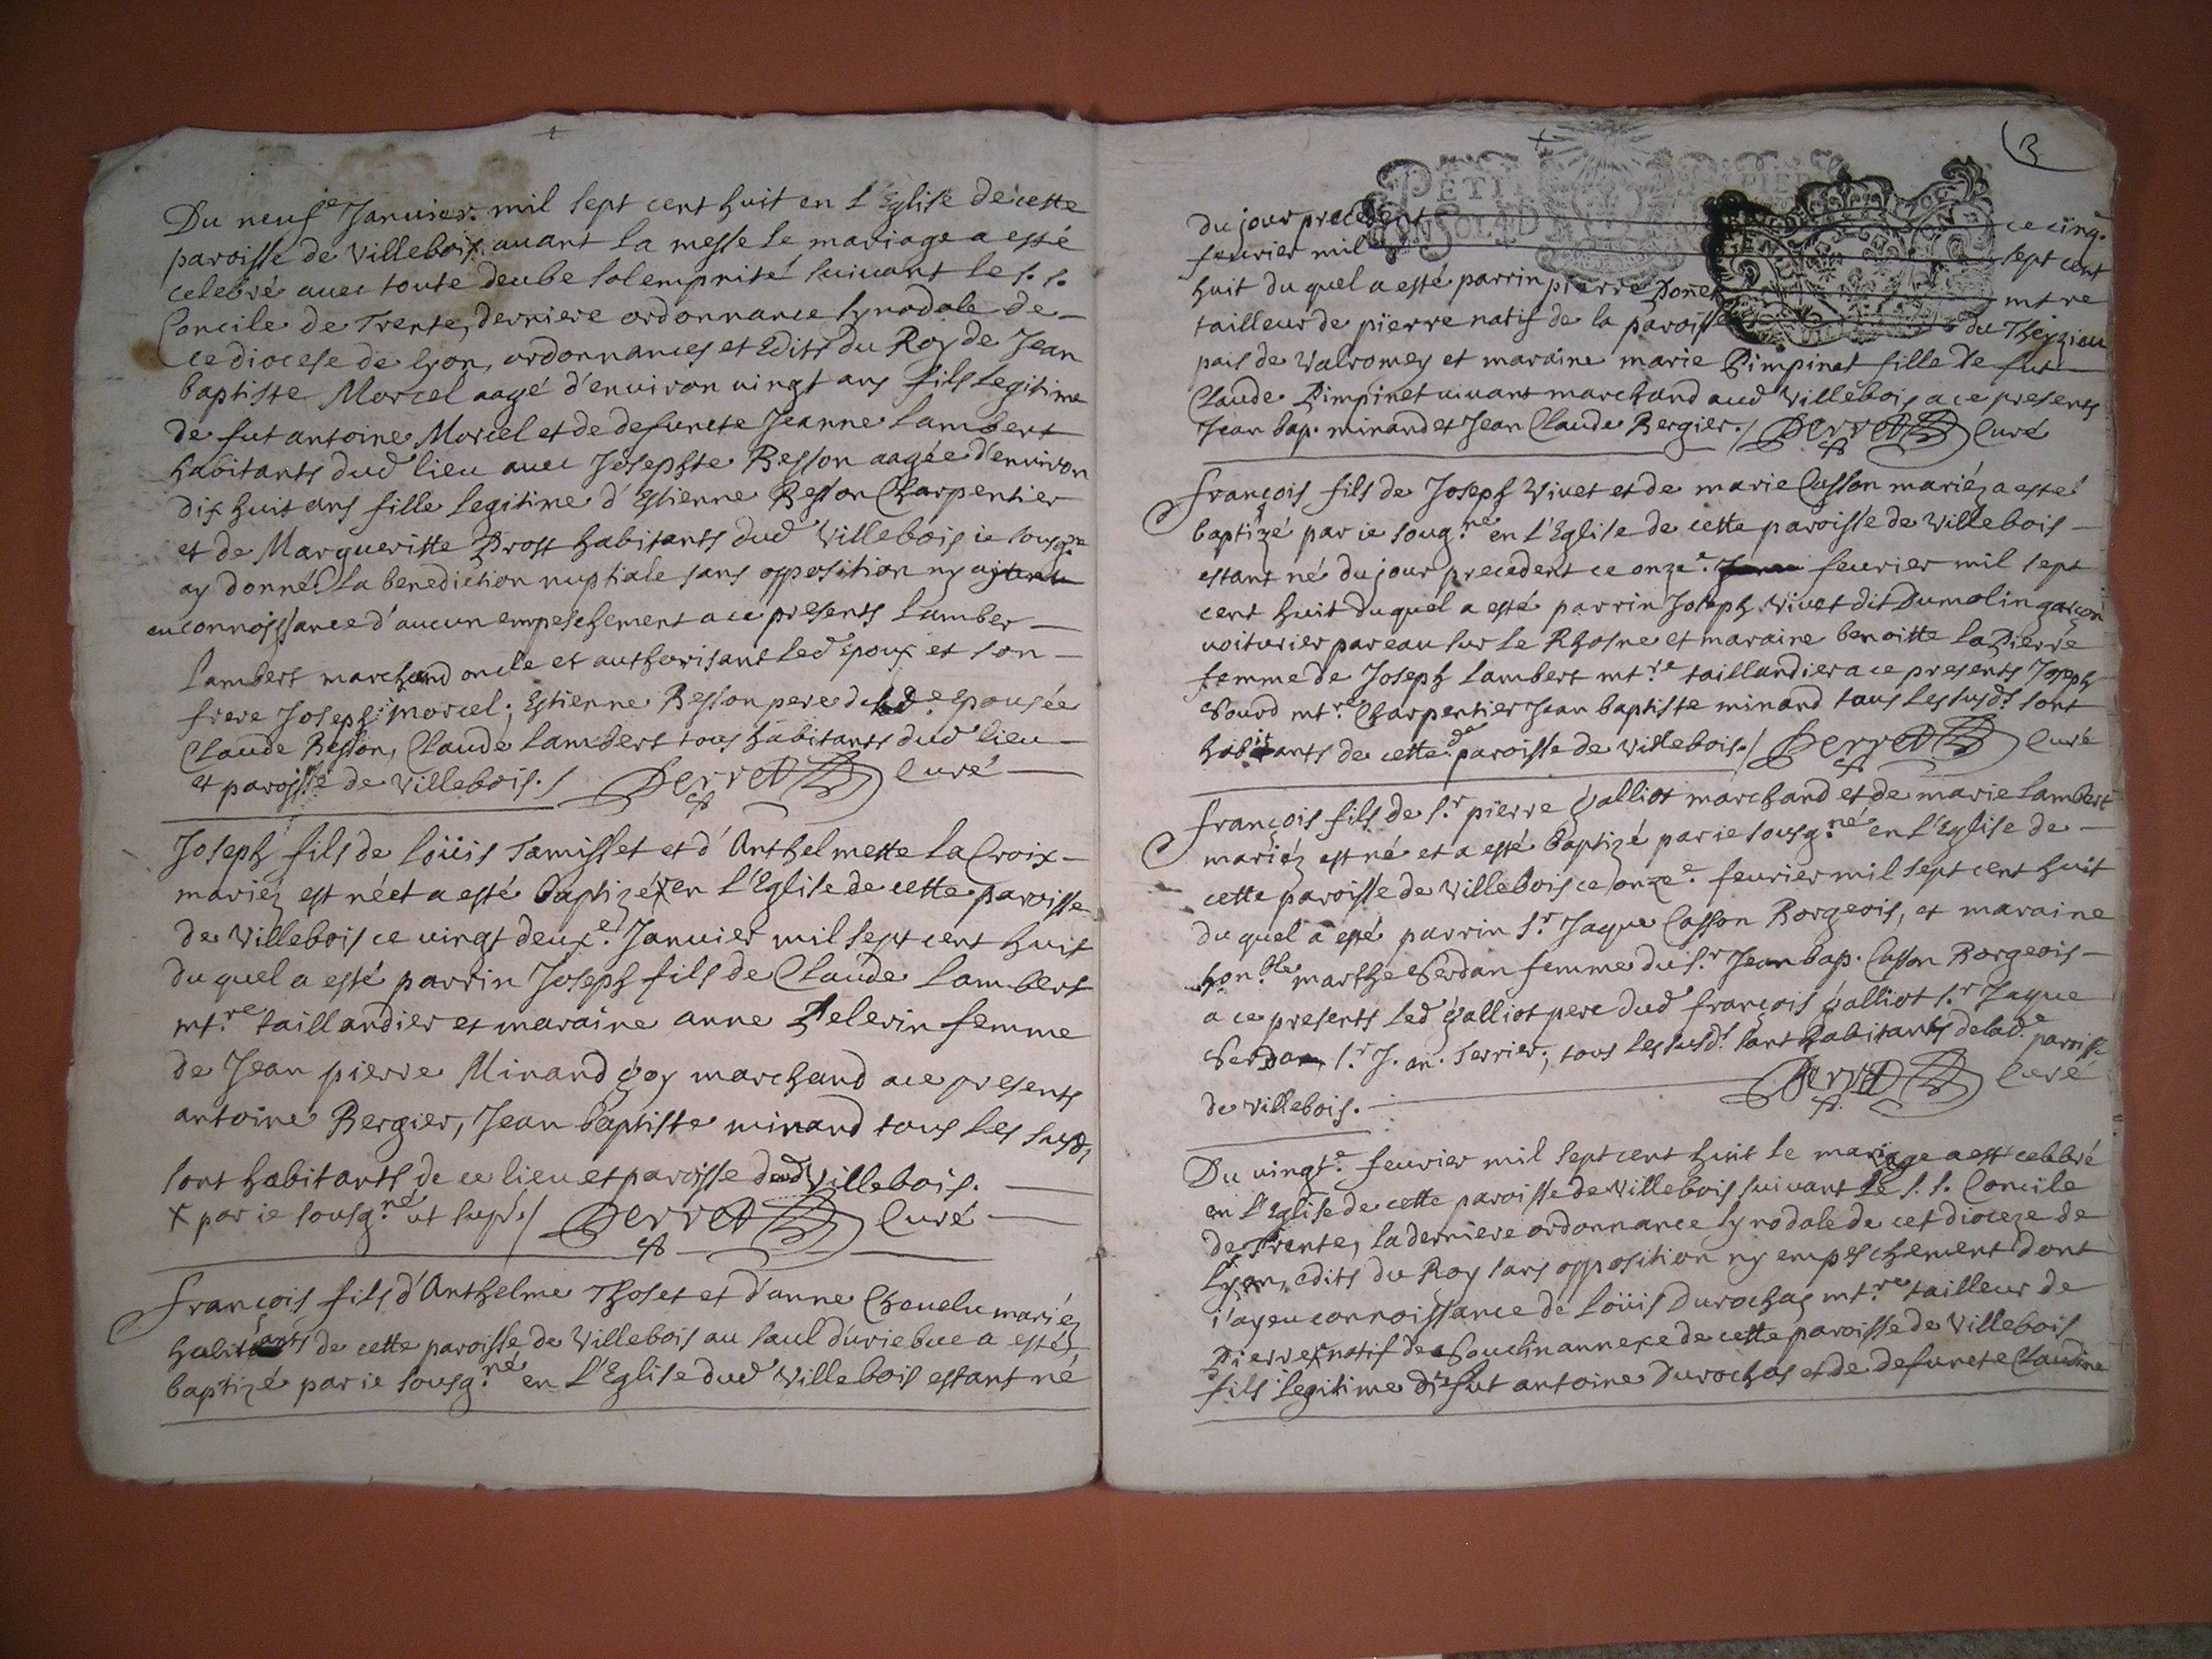 Du neuf.e Janvier mil sept cent huit en l'Eglise de cette
paroisse de Villebois avant la messe le mariage a esté
celebré avec toute deube solempnité suivant le s. s.
Concile de Trente, derniere ordonnance synodale de
ce diocese de lyon, ordonnances et Edits du Roy de Jean
baptiste Morcel aagé d'environ vingt ans fils legitime
de fut antoine Morcel et de defuncte Jeanne Lambert
habitants dud lieu avec Josephte Besson aagée d'environ
dix huit ans fille legitime d'Estienne Besson Charpentier
et de Margueritte Prost habitants dud Villebois ie sousg.né
ay donné la benediction nuptiale sans opposition ny
eu connoissance d'aucun empeschement a ce presents Lamber
Lambert marchand oncle et authorisant led Epoux et son
frere Joseph Morcel; Estienne Besson pere de lad.e espousée
Claude Besson, Claude Lambert tous habitants dud lieu
et paroisse de Villebois./ Perret Curé
Joseph fils de Loüis Tamisset et d'Anthelmette La Croix
mariez est né et a esté baptizé x en l'Eglise de cette paroisse
de Villebois ce vingt deux.e Janvier mil sept cent huit
du quel a esté parrin Joseph fils de Claude Lambert
mt.re taillandier et maraine anne Pelerin femme
de Jean pierre Minand goy marchand a ce presents
antoine Bergier, Jean baptiste minand tous les susd.
sont habitants de ce lieu et paroisse dud Villebois.
x par ie sousg.né ut sup./ Perret Curé
François fils d'Anthelme Thoset et d'anne Chevelu mariez
habitants de cette paroisse de Villebois au a esté
baptizé par ie sousg.né en l'Eglise dud Villebois estant né
3
PETIT PAPIER
CON SOLS D
GEN
du jour precedent ce cinq.e
fevrier mil sept cent
huit du quel a esté parrin pierre Donet mt re
tailleur de pierre natif de la paroisse du Theyzieu
pais de Valromey et maraine marie Pimpinet fille de fut
Claude Pimpinet vivant marchand aud Villebois a ce presents
Jean bap. minand et Jean Claude Bergier./ Perret Curé
François fils de Joseph Vivet et de marie Casson mariez a esté
baptizé par ie soug.né en l'Eglise de cette paroisse de Villebois
estant né du jour precedent ce onze.e fevrier mil sept
cent huit du quel a esté parrin Joseph Vivet dit Dumolin garçon
voiturier par eau sur le Rhosne et maraine benoitte La Pierre
femme de Joseph Lambert mt.re taillandier a ce presents Joseph
Bourd mt.re Charpentier Jean baptiste minand tous les susd.s sont
habitants de cette d.e paroisse de Villebois./ Perret Curé
François fils de s.r pierre Galliot marchand et de marie Lambert
mariéz est né et a esté baptizé par ie sousg.né en l'Eglise de
cette paroisse de Villebois ce onze.e fevrier mil sept cent huit
du quel a esté parrin s.r Jaque Casson Borgeois, et maraine
hon.ble marthe Serdan femme du s.r Jean bap. Casson Borgeois
a ce presents led Galliot pere dud François Galliot s.r Jaque
Serdan, s.r J. an. Serrier; tous les susd.s sont habitants de lad.e paroisse
de Villebois. Perret Curé
Du vingt.e fevrier mil sept cent huit le mariage a est celebré
en l'Eglise de cette paroisse de Villebois suivant le s. s. Concile
de Trente, la derniere ordonnance synodale de cet dioceze de
Lyon, edits du Roy sans opposition ny empeschement dont
i'ay eu connoissance de Loüis Durochas mt.re tailleur de
Pierre x natif de Souclin annexe de cette paroisse de Villebois
fils legitime de fut antoine Durochas et de defuncte Claudine